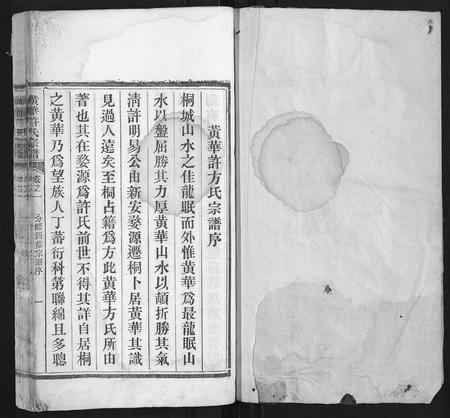 黃華許方氏宗譜序
桐城山水之佳龍眠而外惟黃華爲最龍眠山
水以盤屈勝其力厚黃華山水以頓折勝其氣
淸許明易公由新安婺源遷桐卜居黃華其識
見過人遠矣至桐占籍爲方此黃華方氏所由
著也其在婺源爲許氏前世不得其詳自居桐
之黃華乃爲望族人丁蕃衍科第聯綿且多聰
黃華許氏宗譜 卷之一 宗譜序 一